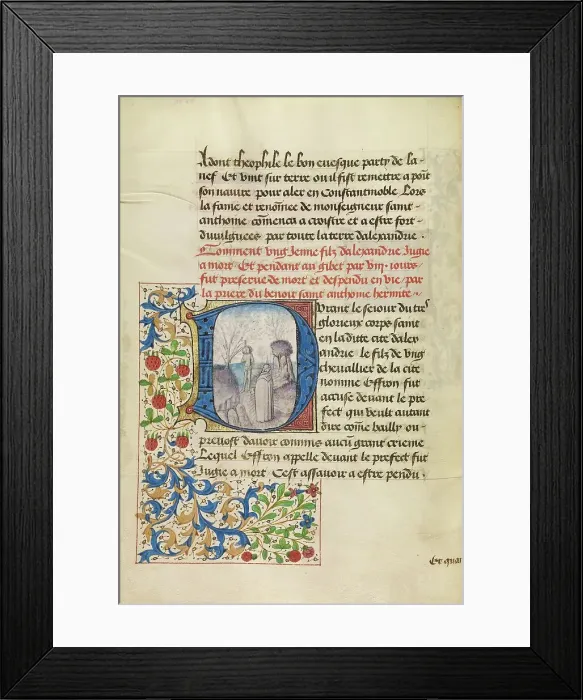 Adont theophile le bon euesque party de la -
nef Et vint sur terre ou il fist remettre a point
son nauire pour aler en Constantinoble Lors
la fame et renomee de monseigneur saint -
anthoine comenca a croistre et a estre fort -
diuulguees par toute la terre dalexandrie .
Comment vng Jenne filz dalexandrie Jugie
a mort Et pendant au gibet par viij iours
fut preserue de mort et despendu en vie par
la priere du benoit saint anthoine hermite .
Durant le seiour du tres
glorieux corps saint
en ladite cite dalex
andrie le filz de vng
cheuallier de la cite
nomme Effron fut
accuse deuant le pre
fect qui veult autant
dire come bailly ou -
preuost dauoir commis aucu grant crieme
Lequel Effron appelle deuant le prefect fut
Jugie a mort Cest assauoir a estre pendu .